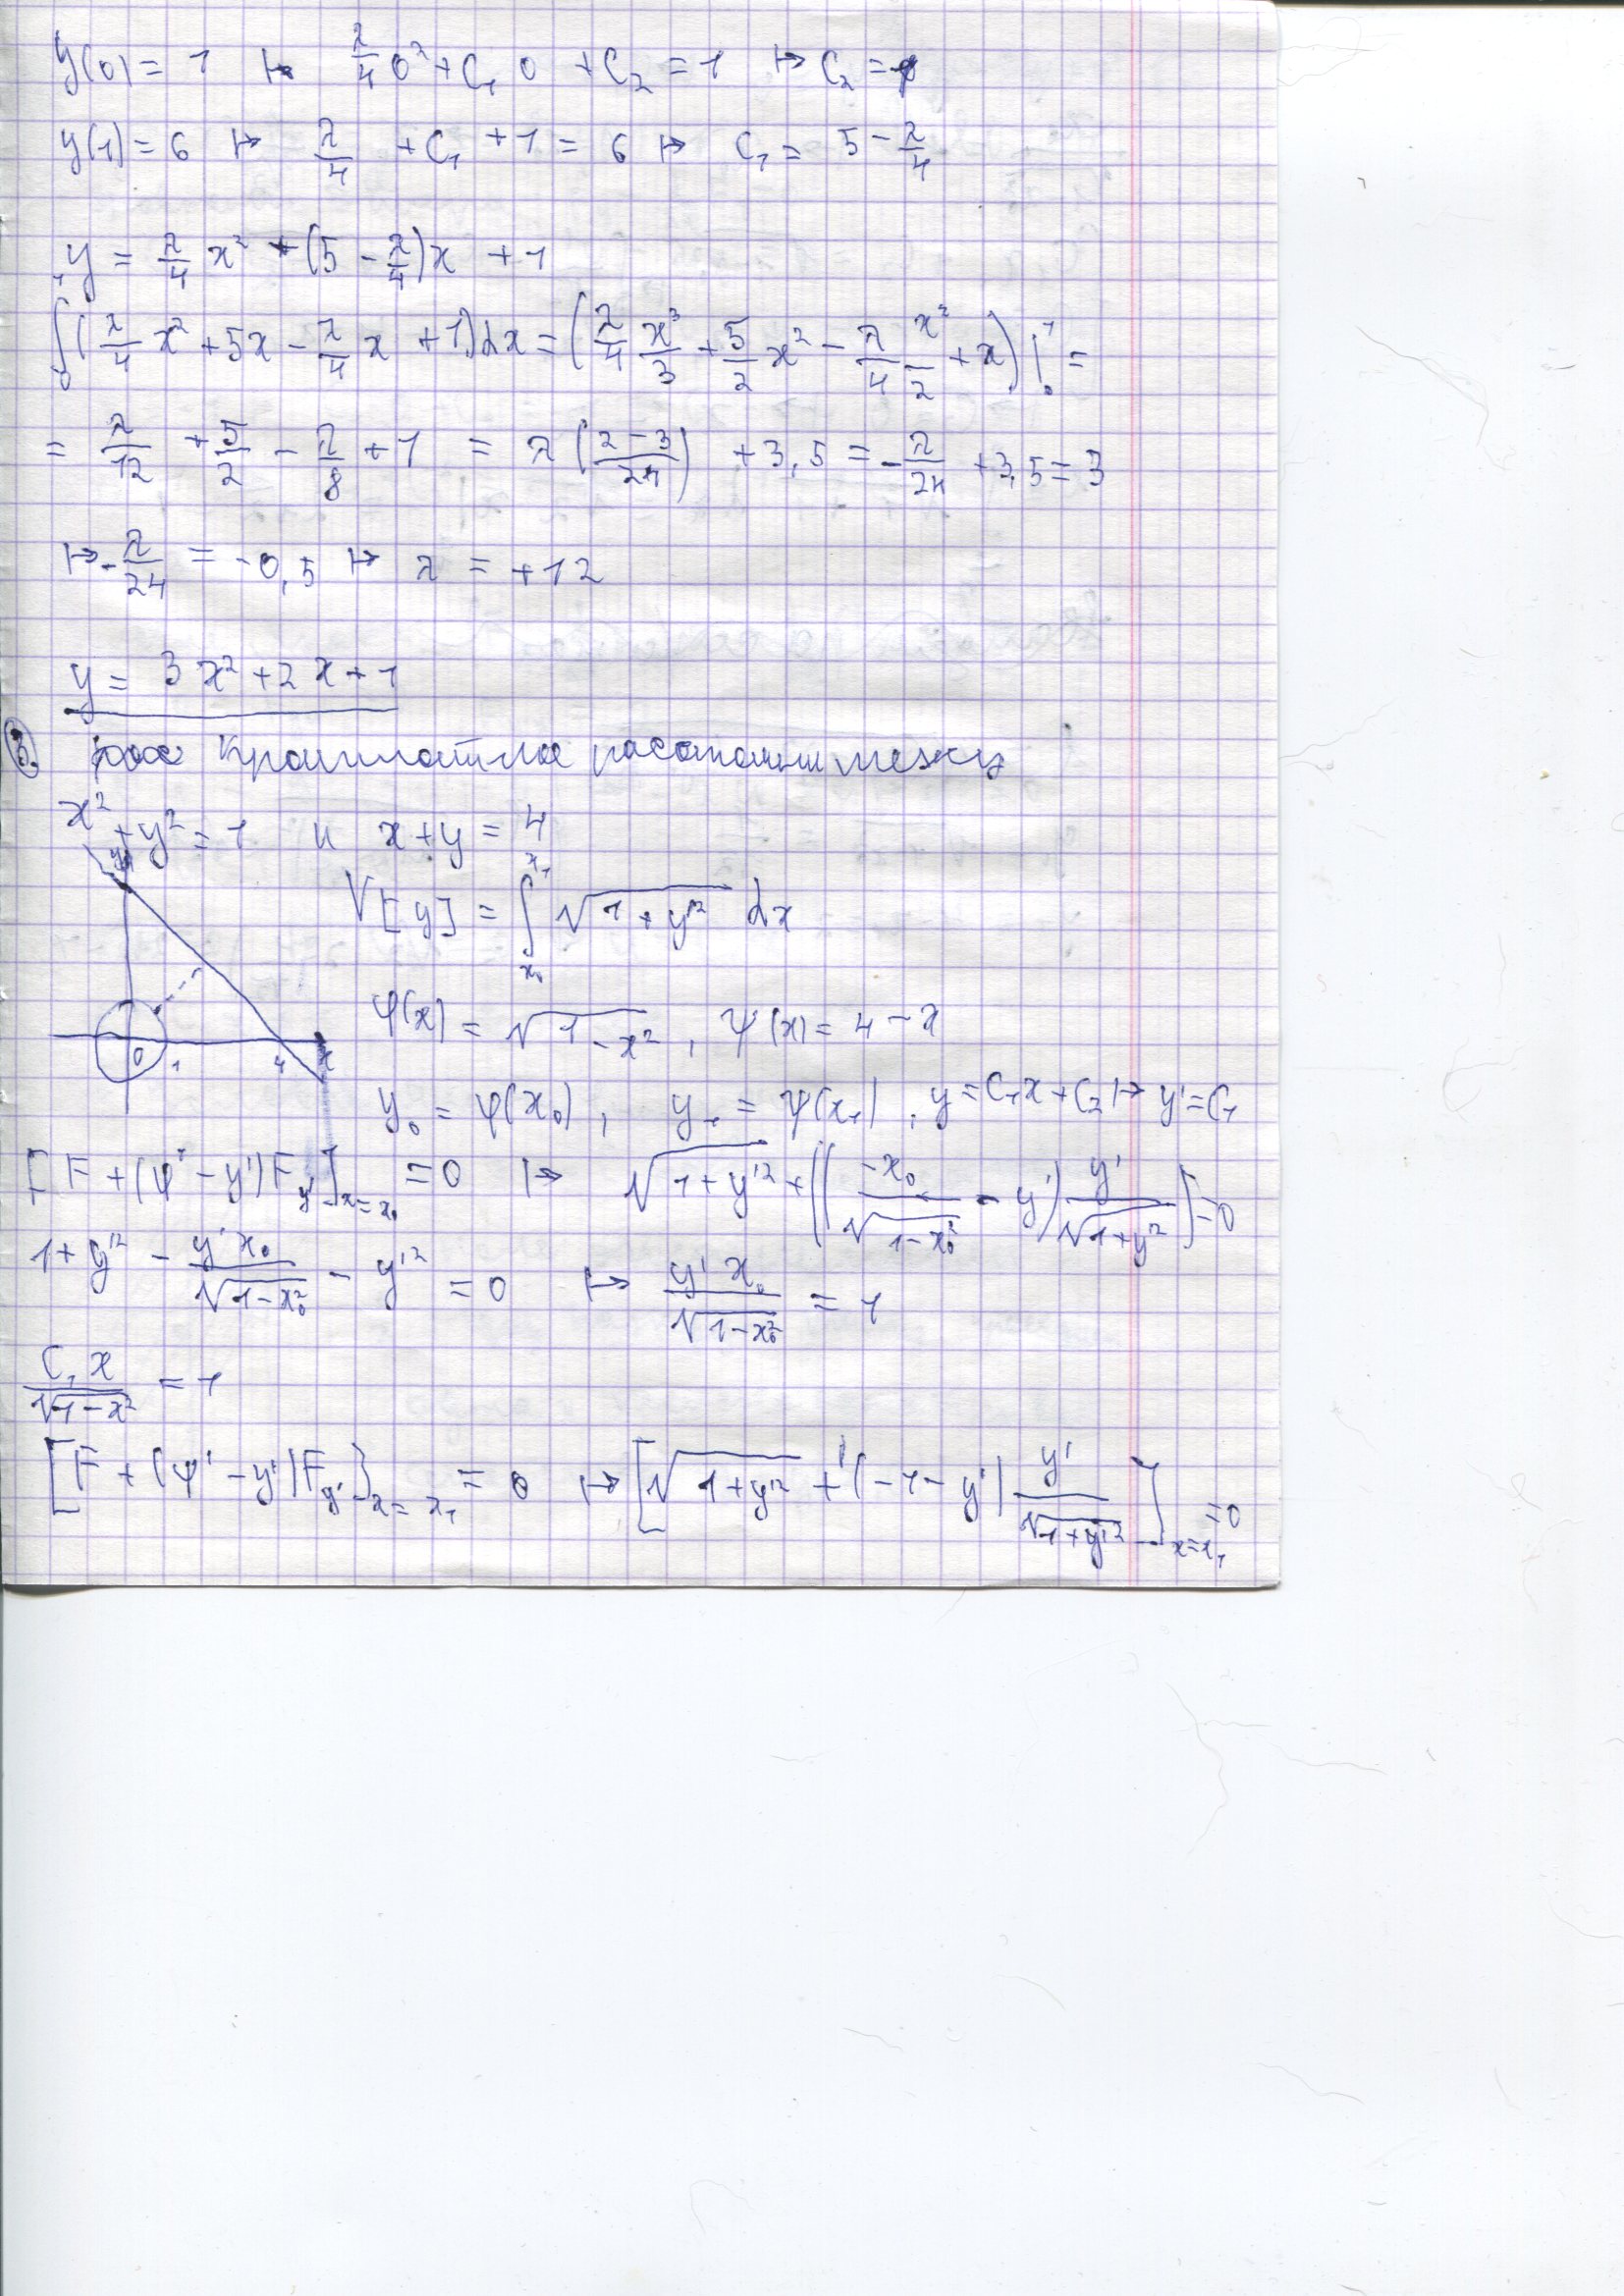 y(0) = 1 ↦ λ/4 0² + C₁ 0 + C₂ = 1 ↦ C₂ = 1
y(1) = 6 ↦ λ/4 + C₁ + 1 = 6 ↦ C₁ = 5 - λ/4
y = λ/4 x² + (5 - λ/4)x + 1
∫₀¹ (λ/4 x² + 5x - λ/4 x + 1)dx = (λ/4 x³/3 + 5/2 x² - λ/4 x²/2 + x)|₀¹ =
= λ/12 + 5/2 - λ/8 + 1 = λ((2-3)/24) + 3,5 = -λ/24 + 3,5 = 3
↦ -λ/24 = -0,5 ↦ λ = +12
y = 3x² + 2x + 1
3. между
x² + y² = 1 и x + y = 4
V[y] = ∫_{x₀}^{x₁} √(1 + y'²) dx
φ(x) = √(1 - x²), ψ(x) = 4 - x
0 1 4 x
y₀ = φ(x₀), y₁ = ψ(x₁), y = C₁x + C₂ ↦ y' = C₁
[F + (φ' - y')F_{y'}]_{x=x₀} = 0 ↦ √(1 + y'²) + ((-x₀/√(1 - x₀²) - y') y'/√(1 + y'²)] = 0
1 + y'² - y'x₀/√(1 - x₀²) - y'² = 0 ↦ y'x₀/√(1 - x₀²) = 1
C₁x/√(1 - x²) = 1
[F + (ψ' - y')F_{y'}]_{x=x₁} = 0 ↦ [√(1 + y'²) + (-1 - y') y'/√(1 + y'²)]_{x=x₁} = 0